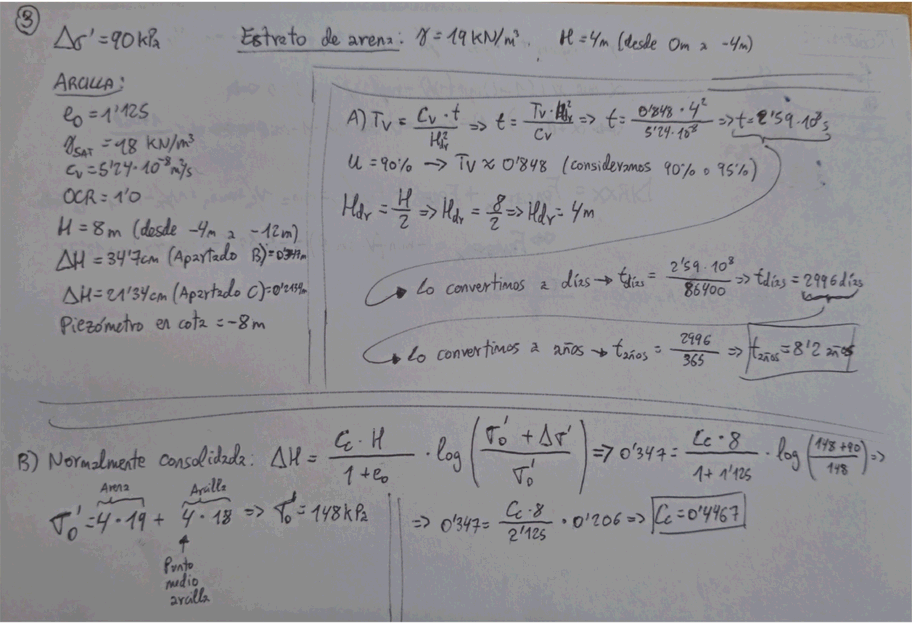 ③
Δσ' = 90 kPa
Estrato de arena: γ = 19 KN/m³. H = 4m (desde 0m a -4m)
ARCILLA:
e₀ = 1'125
γSAT = 18 KN/m³
Cv = 5'24·10⁻⁸ m²/s
OCR = 1'0
H = 8m (desde -4m a -12m)
ΔH = 34'7cm (Apartado B) = 0'347m
ΔH = 21'34cm (Apartado C) = 0'2134m
Piezómetro en cota = -8m
A) Tv = Cv · t / Hdr² => t = Tv · Hdr² / Cv => t = 0'848 · 4² / 5'24·10⁻⁸ => t = 2'59·10⁸ s
U = 90% → Tv ≈ 0'848 (consideramos 90% o 95%)
Hdr = H/2 => Hdr = 8/2 => Hdr = 4m
Lo convertimos a días → tdías = 2'59·10⁸ / 86400 => tdías = 2996 días
Lo convertimos a años → taños = 2996 / 365 => taños = 8'2 años
B) Normalmente consolidada: ΔH = Cc · H / 1+e₀ · log (σ₀' + Δσ' / σ₀') => 0'347 = Cc · 8 / 1 + 1'125 · log (148+90 / 148) =>
Arena Arcilla
σ₀' = 4·19 + 4·18 => σ₀' = 148 kPa
=> 0'347 = Cc · 8 / 2'125 · 0'206 => Cc = 0'4467
Punto
medio
arcilla